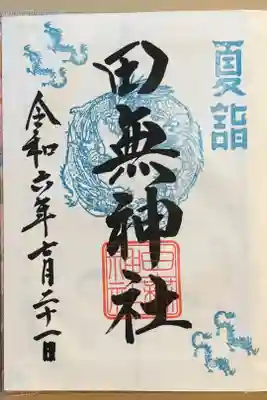 夏詣
田無神社
令和六年七月二十一日
田無神社